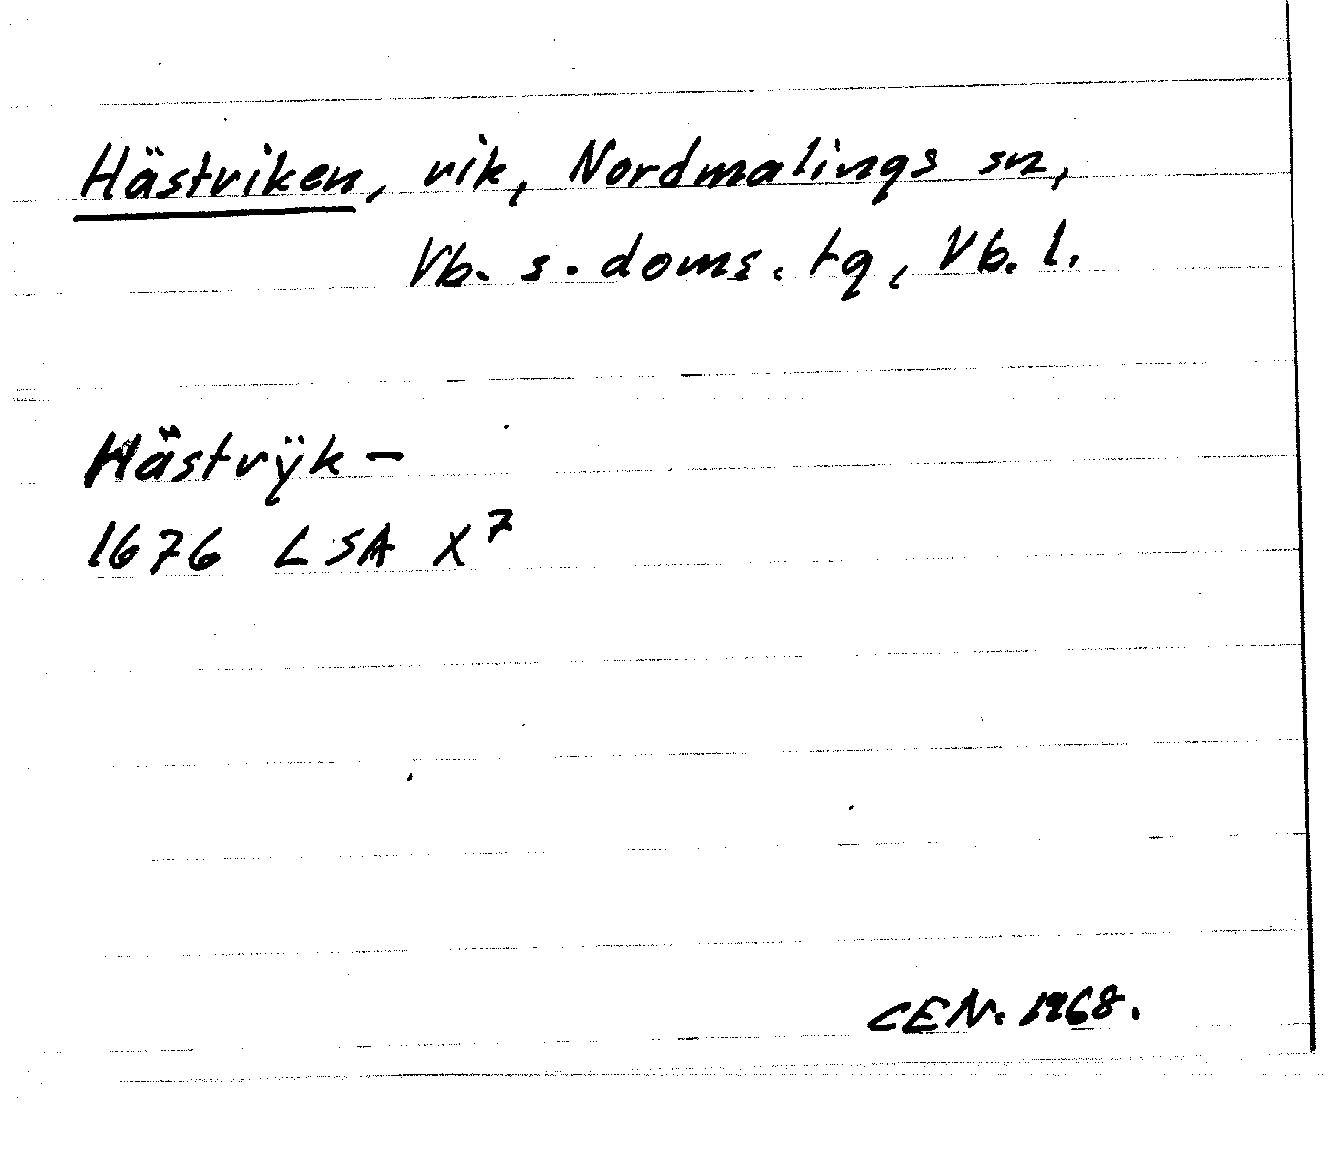 Hästviken, vik, Nordmalings sn,
Vb. s. doms. tg, Vb. l.
Hästvÿk-
1676 LSA X⁷
CEN. 1968.